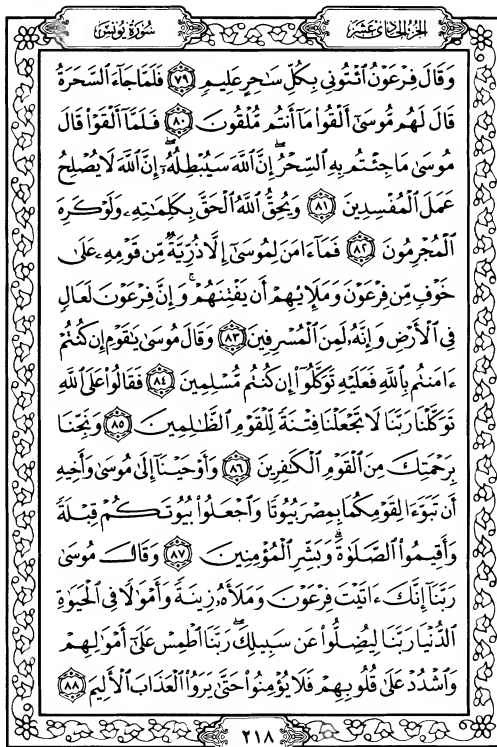 الجزء الحادي عشر
سورة يونس
وَقَالَ فِرْعَوْنُ ٱئْتُونِي بِكُلِّ سَٰحِرٍ عَلِيمٍ ٧٩ فَلَمَّا جَآءَ ٱلسَّحَرَةُ
قَالَ لَهُم مُّوسَىٰٓ أَلْقُوا۟ مَآ أَنتُم مُّلْقُونَ ٨٠ فَلَمَّآ أَلْقَوْا۟ قَالَ
مُوسَىٰ مَا جِئْتُم بِهِ ٱلسِّحْرُ ۖ إِنَّ ٱللَّهَ سَيُبْطِلُهُۥٓ ۖ إِنَّ ٱللَّهَ لَا يُصْلِحُ
عَمَلَ ٱلْمُفْسِدِينَ ٨١ وَيُحِقُّ ٱللَّهُ ٱلْحَقَّ بِكَلِمَٰتِهِۦ وَلَوْ كَرِهَ
ٱلْمُجْرِمُونَ ٨٢ فَمَآ ءَامَنَ لِمُوسَىٰٓ إِلَّا ذُرِّيَّةٌ مِّن قَوْمِهِۦ عَلَىٰ
خَوْفٍ مِّن فِرْعَوْنَ وَمَلَإِي۟هِمْ أَن يَفْتِنَهُمْ ۚ وَإِنَّ فِرْعَوْنَ لَعَالٍ
فِى ٱلْأَرْضِ وَإِنَّهُۥ لَمِنَ ٱلْمُسْرِفِينَ ٨٣ وَقَالَ مُوسَىٰ يَٰقَوْمِ إِن كُنتُمْ
ءَامَنتُم بِٱللَّهِ فَعَلَيْهِ تَوَكَّلُوٓا۟ إِن كُنتُم مُّسْلِمِينَ ٨٤ فَقَالُوا۟ عَلَى ٱللَّهِ
تَوَكَّلْنَا رَبَّنَا لَا تَجْعَلْنَا فِتْنَةً لِّلْقَوْمِ ٱلظَّٰلِمِينَ ٨٥ وَنَجِّنَا
بِرَحْمَتِكَ مِنَ ٱلْقَوْمِ ٱلْكَٰفِرِينَ ٨٦ وَأَوْحَيْنَآ إِلَىٰ مُوسَىٰ وَأَخِيهِ
أَن تَبَوَّءَا لِقَوْمِكُمَا بِمِصْرَ بُيُوتًا وَٱجْعَلُوا۟ بُيُوتَكُمْ قِبْلَةً
وَأَقِيمُوا۟ ٱلصَّلَوٰةَ ۗ وَبَشِّرِ ٱلْمُؤْمِنِينَ ٨٧ وَقَالَ مُوسَىٰ
رَبَّنَآ إِنَّكَ ءَاتَيْتَ فِرْعَوْنَ وَمَلَأَهُۥ زِينَةً وَأَمْوَٰلًا فِى ٱلْحَيَوٰةِ
ٱلدُّنْيَا رَبَّنَا لِيُضِلُّوا۟ عَن سَبِيلِكَ ۖ رَبَّنَا ٱطْمِسْ عَلَىٰٓ أَمْوَٰلِهِمْ
وَٱشْدُدْ عَلَىٰ قُلُوبِهِمْ فَلَا يُؤْمِنُوا۟ حَتَّىٰ يَرَوُا۟ ٱلْعَذَابَ ٱلْأَلِيمَ ٨٨
٢١٨